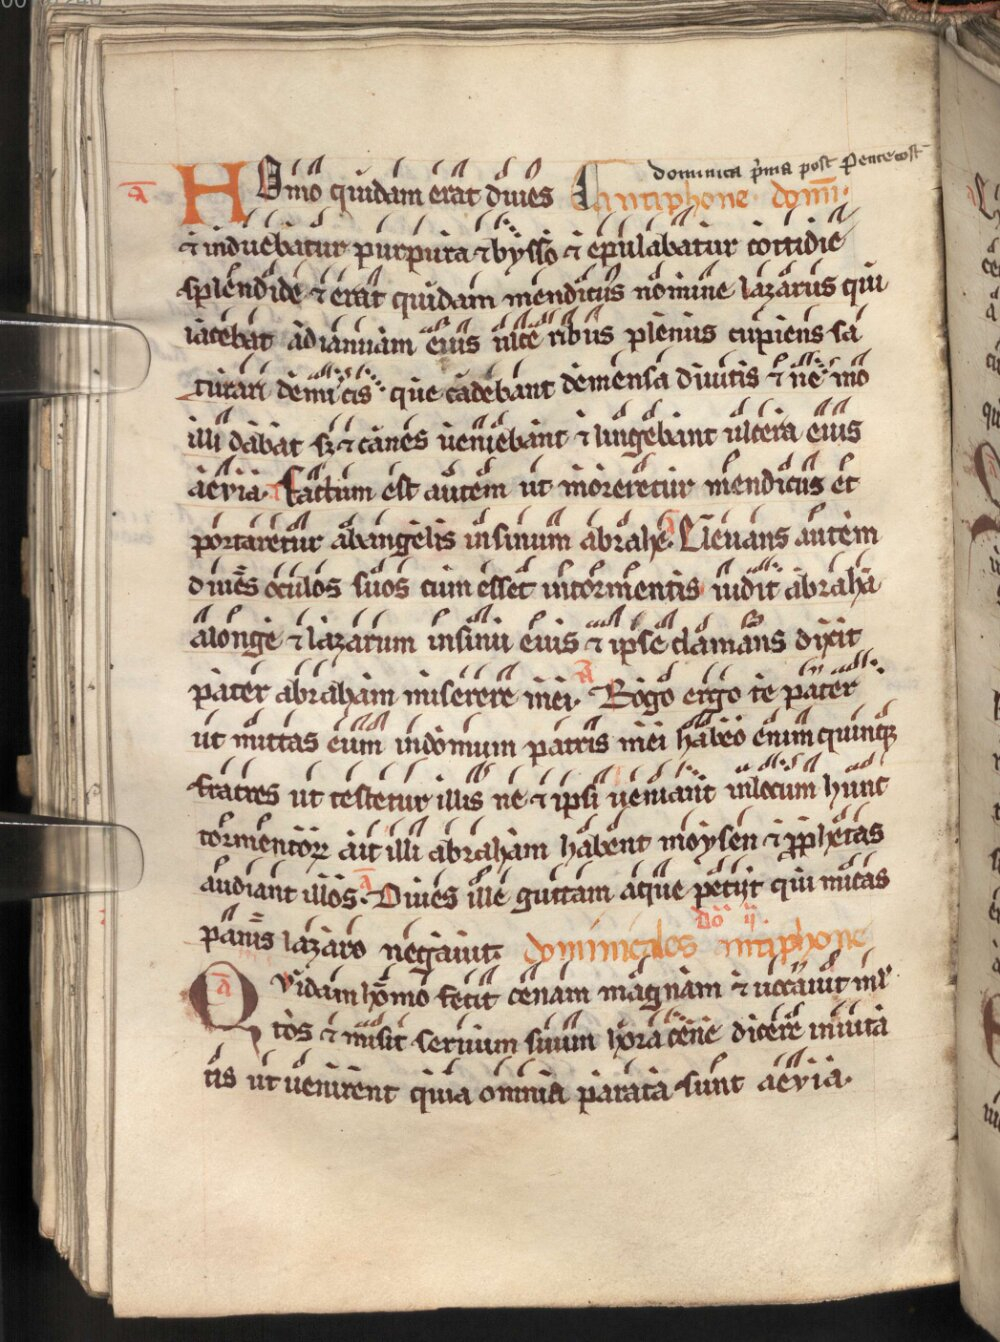 dominica p̄ma post Pentecost
ā HOmo quidam erat diues Antiphone domī.
⁊ induebatur purpura ⁊ bysso ⁊ epulabatur cottidie
splendide ⁊ erat quidam mendicus nomine lazarus qui
iacebat ad ianuam eius ulceribus plenus cupiens sa
turari de micis que cadebant de mensa diuitis ⁊ nemo
illi dabat sꝫ ⁊ canes ueniebant ⁊ lingebant ulcera eius
aeuia. Factum est autem ut moreretur mendicus et
portaretur ab angelis in sinum abrahe. ā Eleuans autem
diues oculos suos cum esset in tormentis uidit abrahā
a longe ⁊ lazarum in sinu eius ⁊ ipse clamans dixit
pater abraham miserere mei. ā Rogo ergo te pater
ut mittas eum in domum patris mei habeo enim quinqꝫ
fratres ut testetur illis ne ⁊ ipsi ueniant in locum hunc
tormentoꝝ ait illi abraham habent moysen ⁊ ꝓphetas
audiant illos. ā Diues ille guttam aque petijt qui micas
panis lazaro negauit. dominicales antiphone Dō ii.
ā Quidam homo fecit cenam magnam ⁊ uocauit ml
tos ⁊ misit seruum suum hora cene dicere inuita
tis ut uenirent quia omnia parata sunt aeuia.